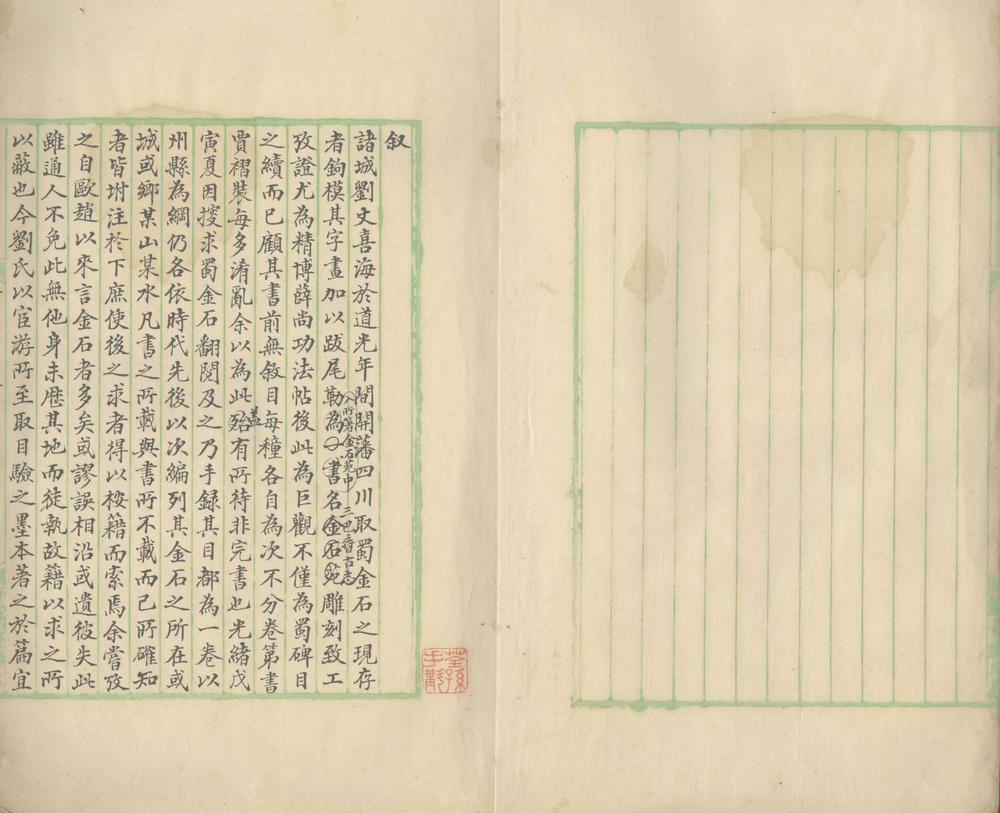 叙
諸城劉丈喜海於道光年間開藩四川取蜀金石之現存
者鉤模其字畫加以跋尾勒為書名金石苑雕刻致工
入所著金石苑中 三巴耆古志
攷證尤為精博薛尚功法帖後此為巨觀不僅為蜀碑目
之續而已顧其書前無敘目每種各自為次不分卷第書
賈褶裝每多淆亂余以為此殆有所待非完書也光緒戊
蓋
寅夏因搜求蜀金石翻閱及之乃手録其目都為一卷以
州縣為綱仍各依時代先後以次編列其金石之所在或
城或鄉某山某水凡書之所載與書所不載而已所確知
者皆坿注於下庶使後之求者得以桉籍而索焉余嘗攷
之自歐趙以來言金石者多矣或謬誤相沿或遺彼失此
雖通人不免此無他身未歷其地而徒執故籍以求之所
以蔽也今劉氏以宦游所至取目驗之墨本著之於篇宜
荃孫